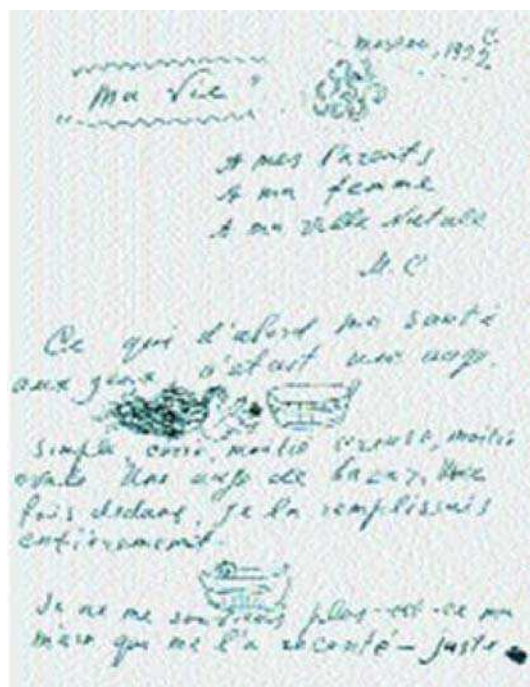 Moscou, 1922
"Ma Vie"
A mes Parents
A ma femme
A ma ville Natale
M. C
Ce qui d'abord m'a sauté
aux yeux c'etait une auge.
Simple, carré, moitié creuse, moitié
ovale Une auge de bazar. Une
fois dedans, je la remplissais
entièrement.
Je ne me souviens plus - est-ce ma
mère qui me l'a raconté - juste